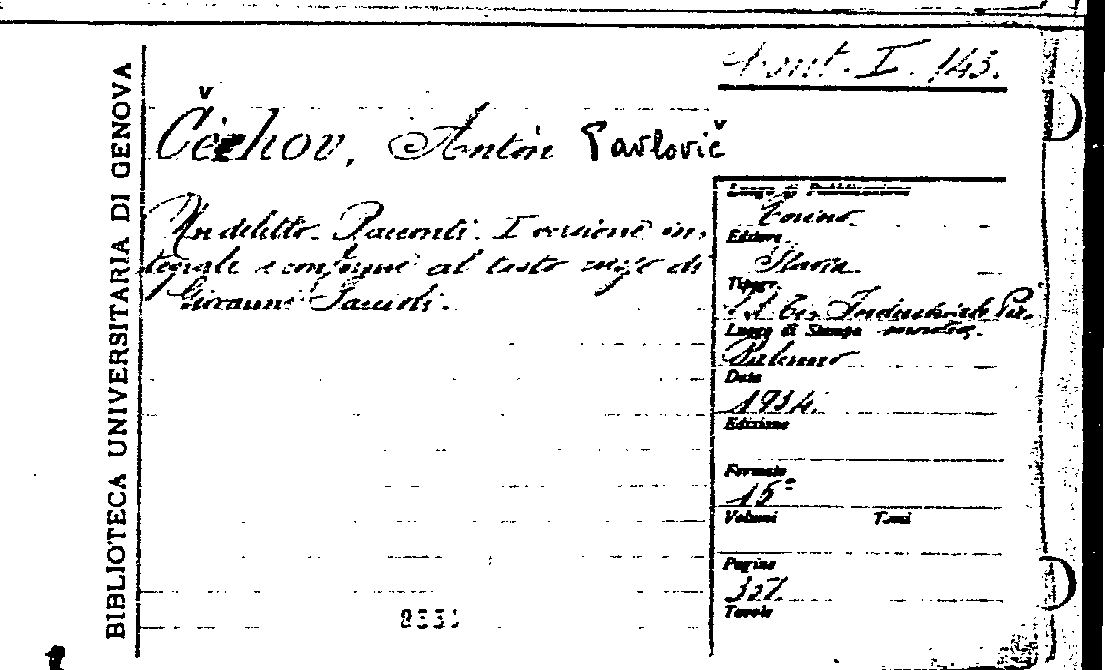 BIBLIOTECA UNIVERSITARIA DI GENOVA
I. 143.
Čechov, Anton Pavlovič
Un delitto. Racconti. I versione in,
tegrale e conforme al testo russo di
Giovanni Faccioli.
Luogo di Pubblicazione
Torino
Editore
Slavia
Tipogr.
Industriale
Luogo di Stampa
Palermo
Data
1934.
Edizione
Formato
15°
Volumi Tomi
Pagine
327.
Tavole